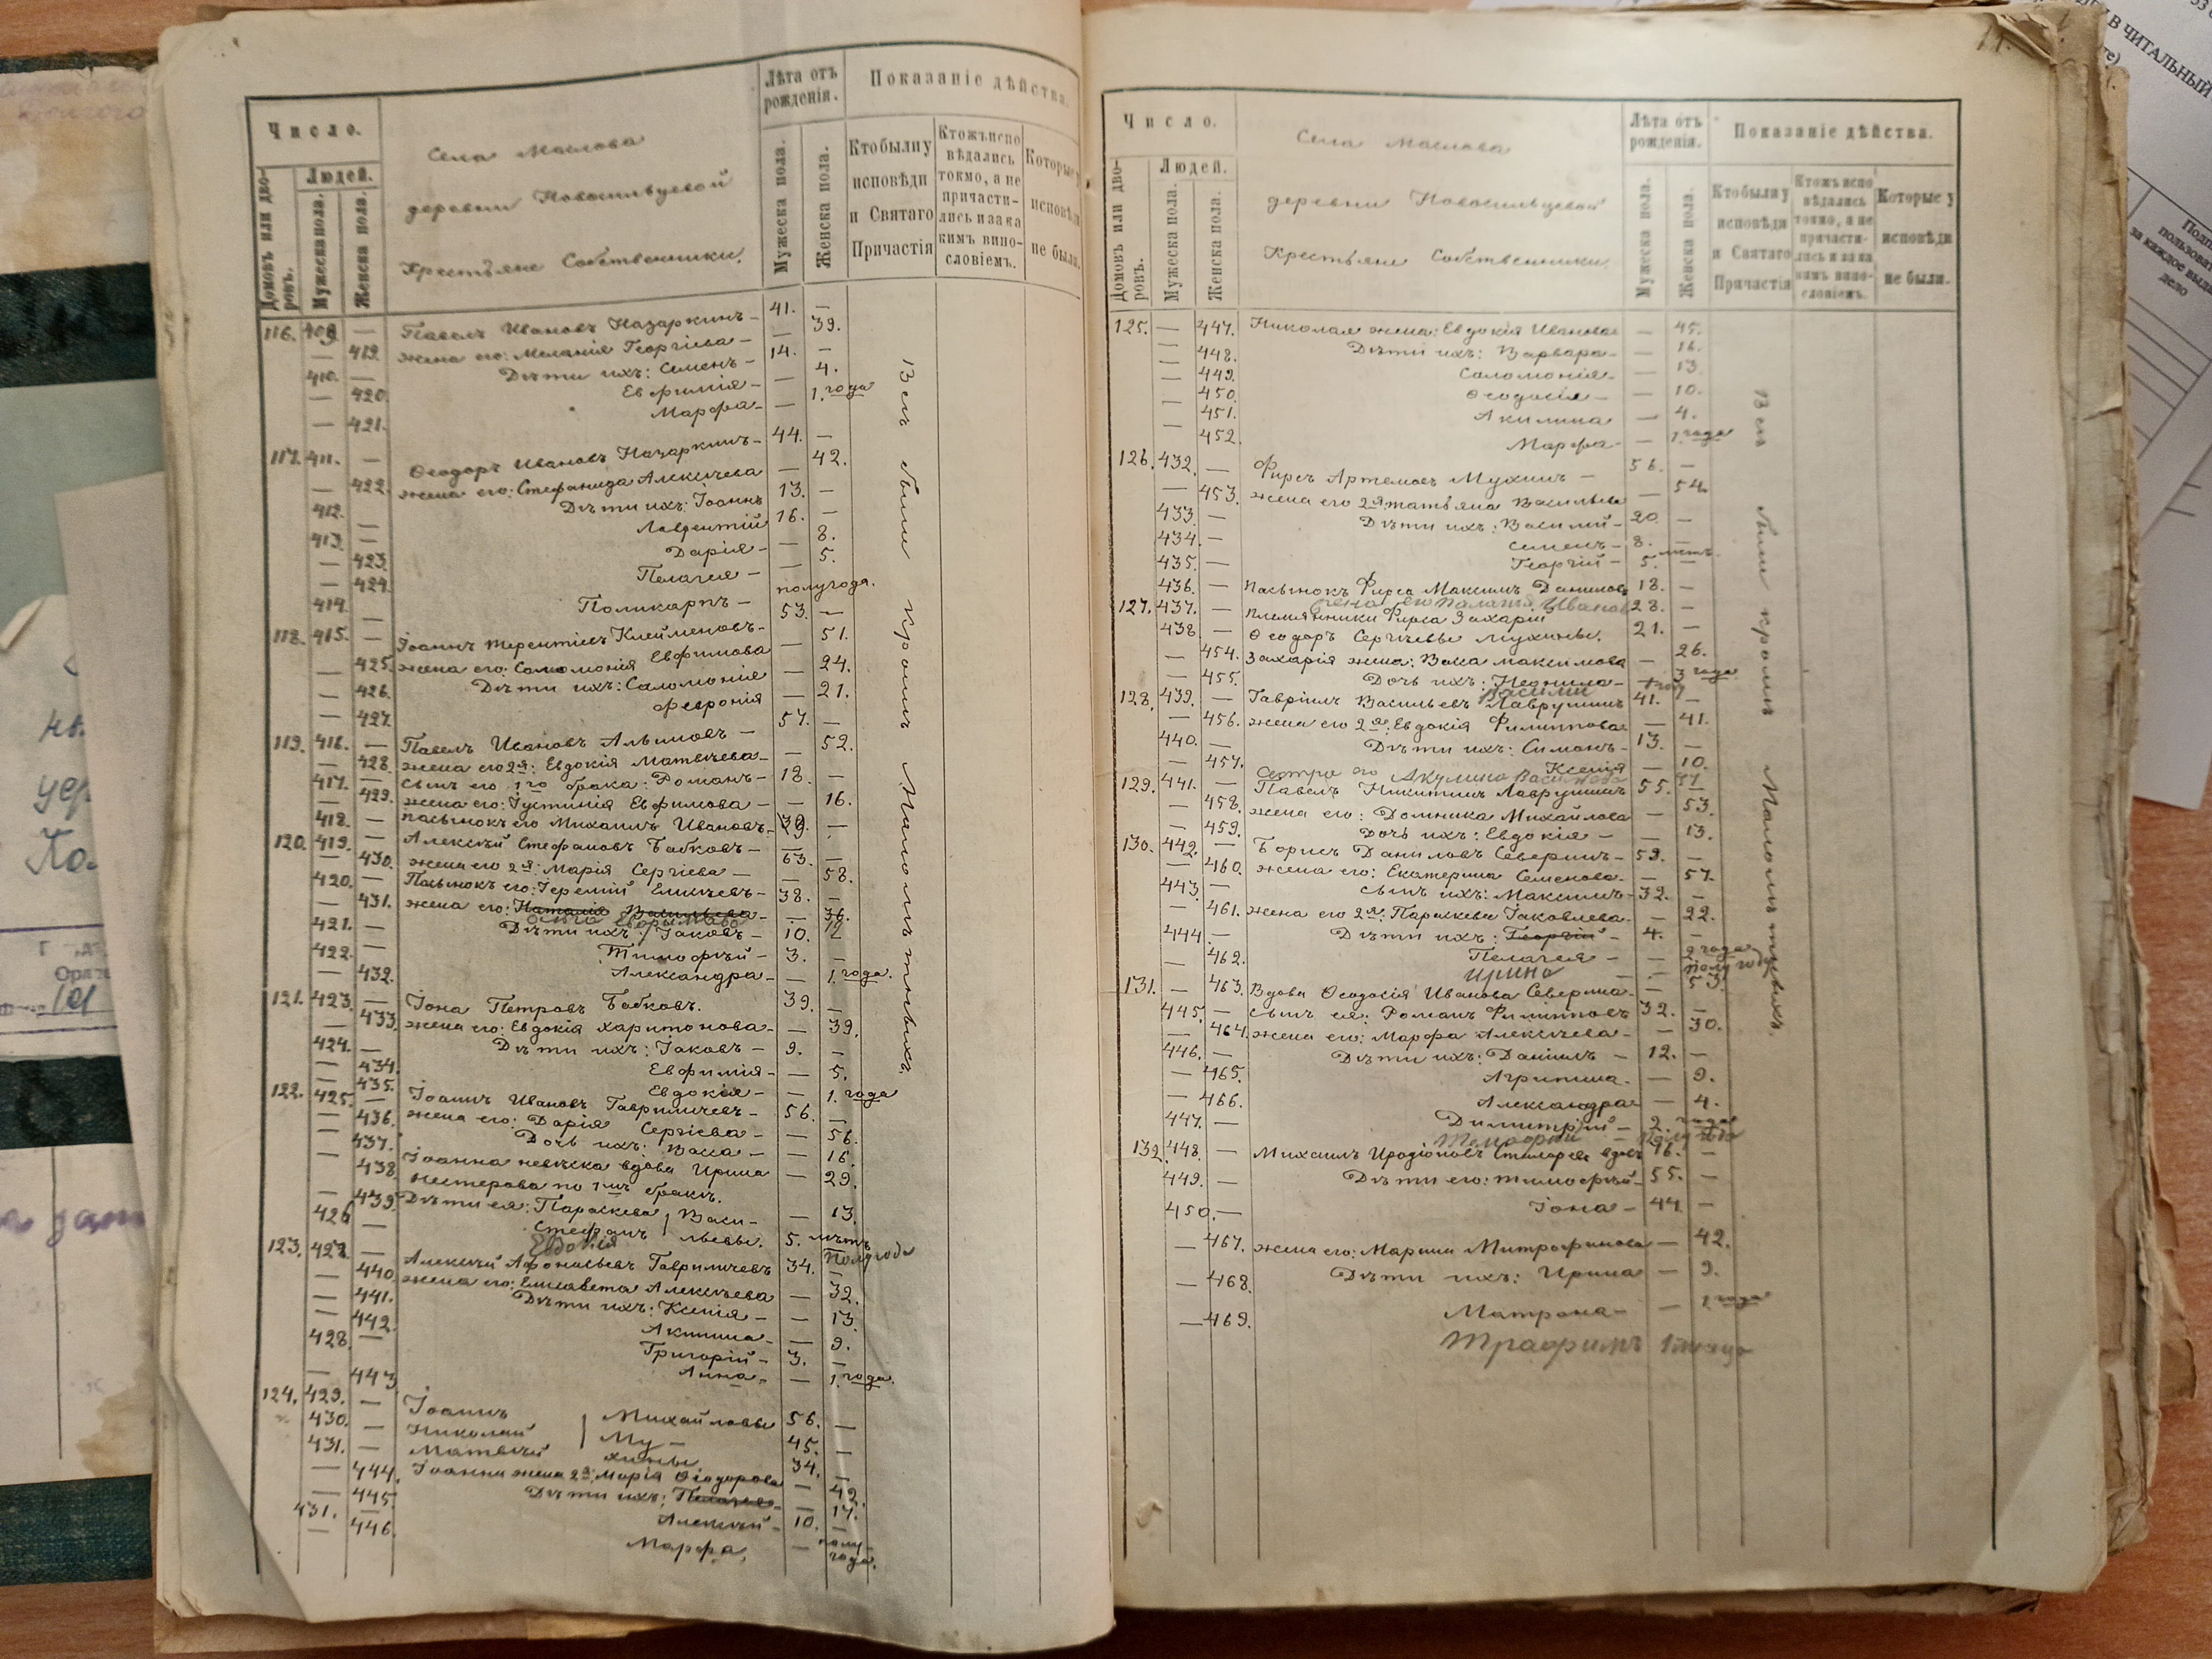 Число.
Домовъ или дворовъ.
Людей.
Мужеска пола.
Женска пола.
Села Маслова
деревни Новосильцевой
Крестьяне Собственники.
Лѣта отъ рожденія.
Мужеска пола.
Женска пола.
Показаніе дѣйства.
Кто были у исповѣди и Святаго Причастія
Ктожъ исповѣдались токмо, а не причастились и за какимъ винословіемъ.
Которые у исповѣди не были.
116. 409 — Павелъ Ивановъ Назаркинъ — 41. —
— 419. жена его: Меланія Георгіева — — 39.
410. — Дѣти ихъ: Семенъ — 14. —
— 420. Евфимія — — 4.
— 421. Марфа — — 1. года
117. 411. — Ѳеодоръ Ивановъ Назаркинъ — 44. —
— 422. жена его: Стефанида Алексѣева — 42.
412. — Дѣти ихъ: Іоаннъ 13. —
413. — Лаврентій 16. —
— 423. Дарія — — 8.
— 424. Пелагея — — 5.
414. — Поликарпъ — полугода.
118. 415. — Іоаннъ Терентіевъ Клейменовъ — 53. —
— 425. жена его: Соломонія Евфимова — 51.
— 426. Дѣти ихъ: Соломонія — 24.
— 427. Февронія — 21.
119. 416. — Павелъ Ивановъ Алымовъ — 57. —
— 428. жена его 2я: Евдокія Матвѣева — — 52.
417. — сынъ его 1го брака: Романъ — 18. —
— 429. жена его: Іустинія Евфимова — — 16.
418. — пасынокъ его Михаилъ Ивановъ — 29. —
120. 419. — Алексѣй Стефановъ Бабковъ — 63. —
— 430. жена его 2я: Марія Сергіева — — 58.
420. — Пасынокъ его: Іеремій Елисѣевъ — 38. —
— 431. жена его: Наталія Васильева — — 36.
421. — Дѣти ихъ: Іаковъ — 10. —
422. — Тимофѣй — 3. —
— 432. Александра — — 1. года.
121. 423. — Іона Петровъ Бабковъ. 39. —
— 433. жена его: Евдокія Харитонова — — 39.
424. — Дѣти ихъ: Іаковъ — 9. —
— 434. Евфимія — — 5.
— 435. Евдокія — — 1. года
122. 425. — Іоаннъ Ивановъ Гавриличевъ — 56. —
— 436. жена его: Дарія Сергіева — — 56.
— 437. Дочь ихъ: Васса — — 16.
— 438. Іоанна невѣстка вдова Ирина — 29.
Нестерова по 1мъ бракѣ.
— 439. Дѣти ея: Параскева Васи- — 13.
426 — Стефанъ льевы. 5. лѣтъ
Евдокія Полугода
123. 427. — Алексѣй Афонасьевъ Гавриличевъ 34. —
— 440. жена его: Елисавета Алексѣева — 32.
— 441. Дѣти ихъ: Ксенія — — 13.
— 442. Акилина — — 9.
428. — Григорій — 3. —
— 443. Анна — — 1. года.
124. 429. — Іоаннъ Михайловы 56. —
430. — Николай Му- 45. —
431. — Матвѣй хины 34. —
— 444. Іоанна жена 2я: Марія Ѳеодорова — 42.
— 445. Дѣти ихъ: Пелагея — — 17.
431. — Алексѣй — 10. —
— 446. Марфа. — полугода.
Всѣ были кромѣ Малолѣтныхъ.
Число.
Домовъ или дворовъ.
Людей.
Мужеска пола.
Женска пола.
Села Маслова
деревни Новосильцевой
Крестьяне Собственники.
Лѣта отъ рожденія.
Мужеска пола.
Женска пола.
Показаніе дѣйства.
Кто были у исповѣди и Святаго Причастія
Ктожъ исповѣдались токмо, а не причастились и за какимъ винословіемъ.
Которые у исповѣди не были.
125. — 447. Николая жена: Евдокія Иванова — 45.
— 448. Дѣти ихъ: Варвара — — 16.
— 449. Соломонія — — 13.
— 450. Ѳеодосія — — 10.
— 451. Акилина — 4.
— 452. Марфа — — 1. года
126. 432. — Фирсъ Артемовъ Мухинъ — 56. —
— 453. жена его 2я Татьяна Васильева — 54.
433. — Дѣти ихъ: Василій — 20. —
434. — Семенъ — 8. —
435. — Георгій — 5. лѣтъ
436. — Пасынокъ Фирса Максимъ Даниловъ 18. —
жена его Палагея Иванов
127. 437. — Племянники Фирса Захарій 28. —
438 — Ѳеодоръ Сергѣевы Мухины. 21. —
— 454. Захарія жена: Васса Максимова — 26.
— 455. Дочь ихъ: Неонила — — 3 года
Василій
128. 439. — Гавріилъ Васильевъ Лаврушинъ 41. —
— 456. жена его 2я: Евдокія Филиппова — 41.
440. — Дѣти ихъ: Симонъ — 13. —
— 457. Ксенія — 10.
Сестра его Акулина Васильева
129. 441. — Павелъ Никитинъ Лаврушинъ 55. —
— 458. жена его: Домника Михайлова — 53.
— 459. Дочь ихъ: Евдокія — — 13.
130. 442. — Борисъ Даниловъ Северинъ — 59. —
— 460. жена его: Екатерина Семенова — — 57.
443. — сынъ ихъ: Максимъ — 32. —
— 461. жена его 2я: Параскева Іаковлева — — 22.
444. — Дѣти ихъ: Георгій — 4. —
— 462. Пелагея — — 2 года
Ирина — — полугоду
131. — 463. Вдова Ѳеодосія Иванова Северина — — 53.
445. — сынъ ея: Романъ Филипповъ 32. —
— 464. жена его: Марфа Алексѣева — — 30.
446. — Дѣти ихъ: Даніилъ — 12. —
— 465. Агрипина — — 9.
— 466. Александра — — 4.
447. — Димитрій — 2. года
Тимофей — Полугода
132. 448. — Михаилъ Иродіоновъ Столяровъ вдовъ 76. —
449. — Дѣти его: Тимофѣй — 55. —
450. — Іона — 44. —
— 467. жена его: Марина Митрофанова — 42.
— 468. Дѣти ихъ: Ирина — 9.
— 469. Матрона — — 1. года
Трафримъ 1 месяцъ
Всѣ были кромѣ Малолѣтныхъ.
В ЧИТАЛЬНЫЙ
за каждое
дело